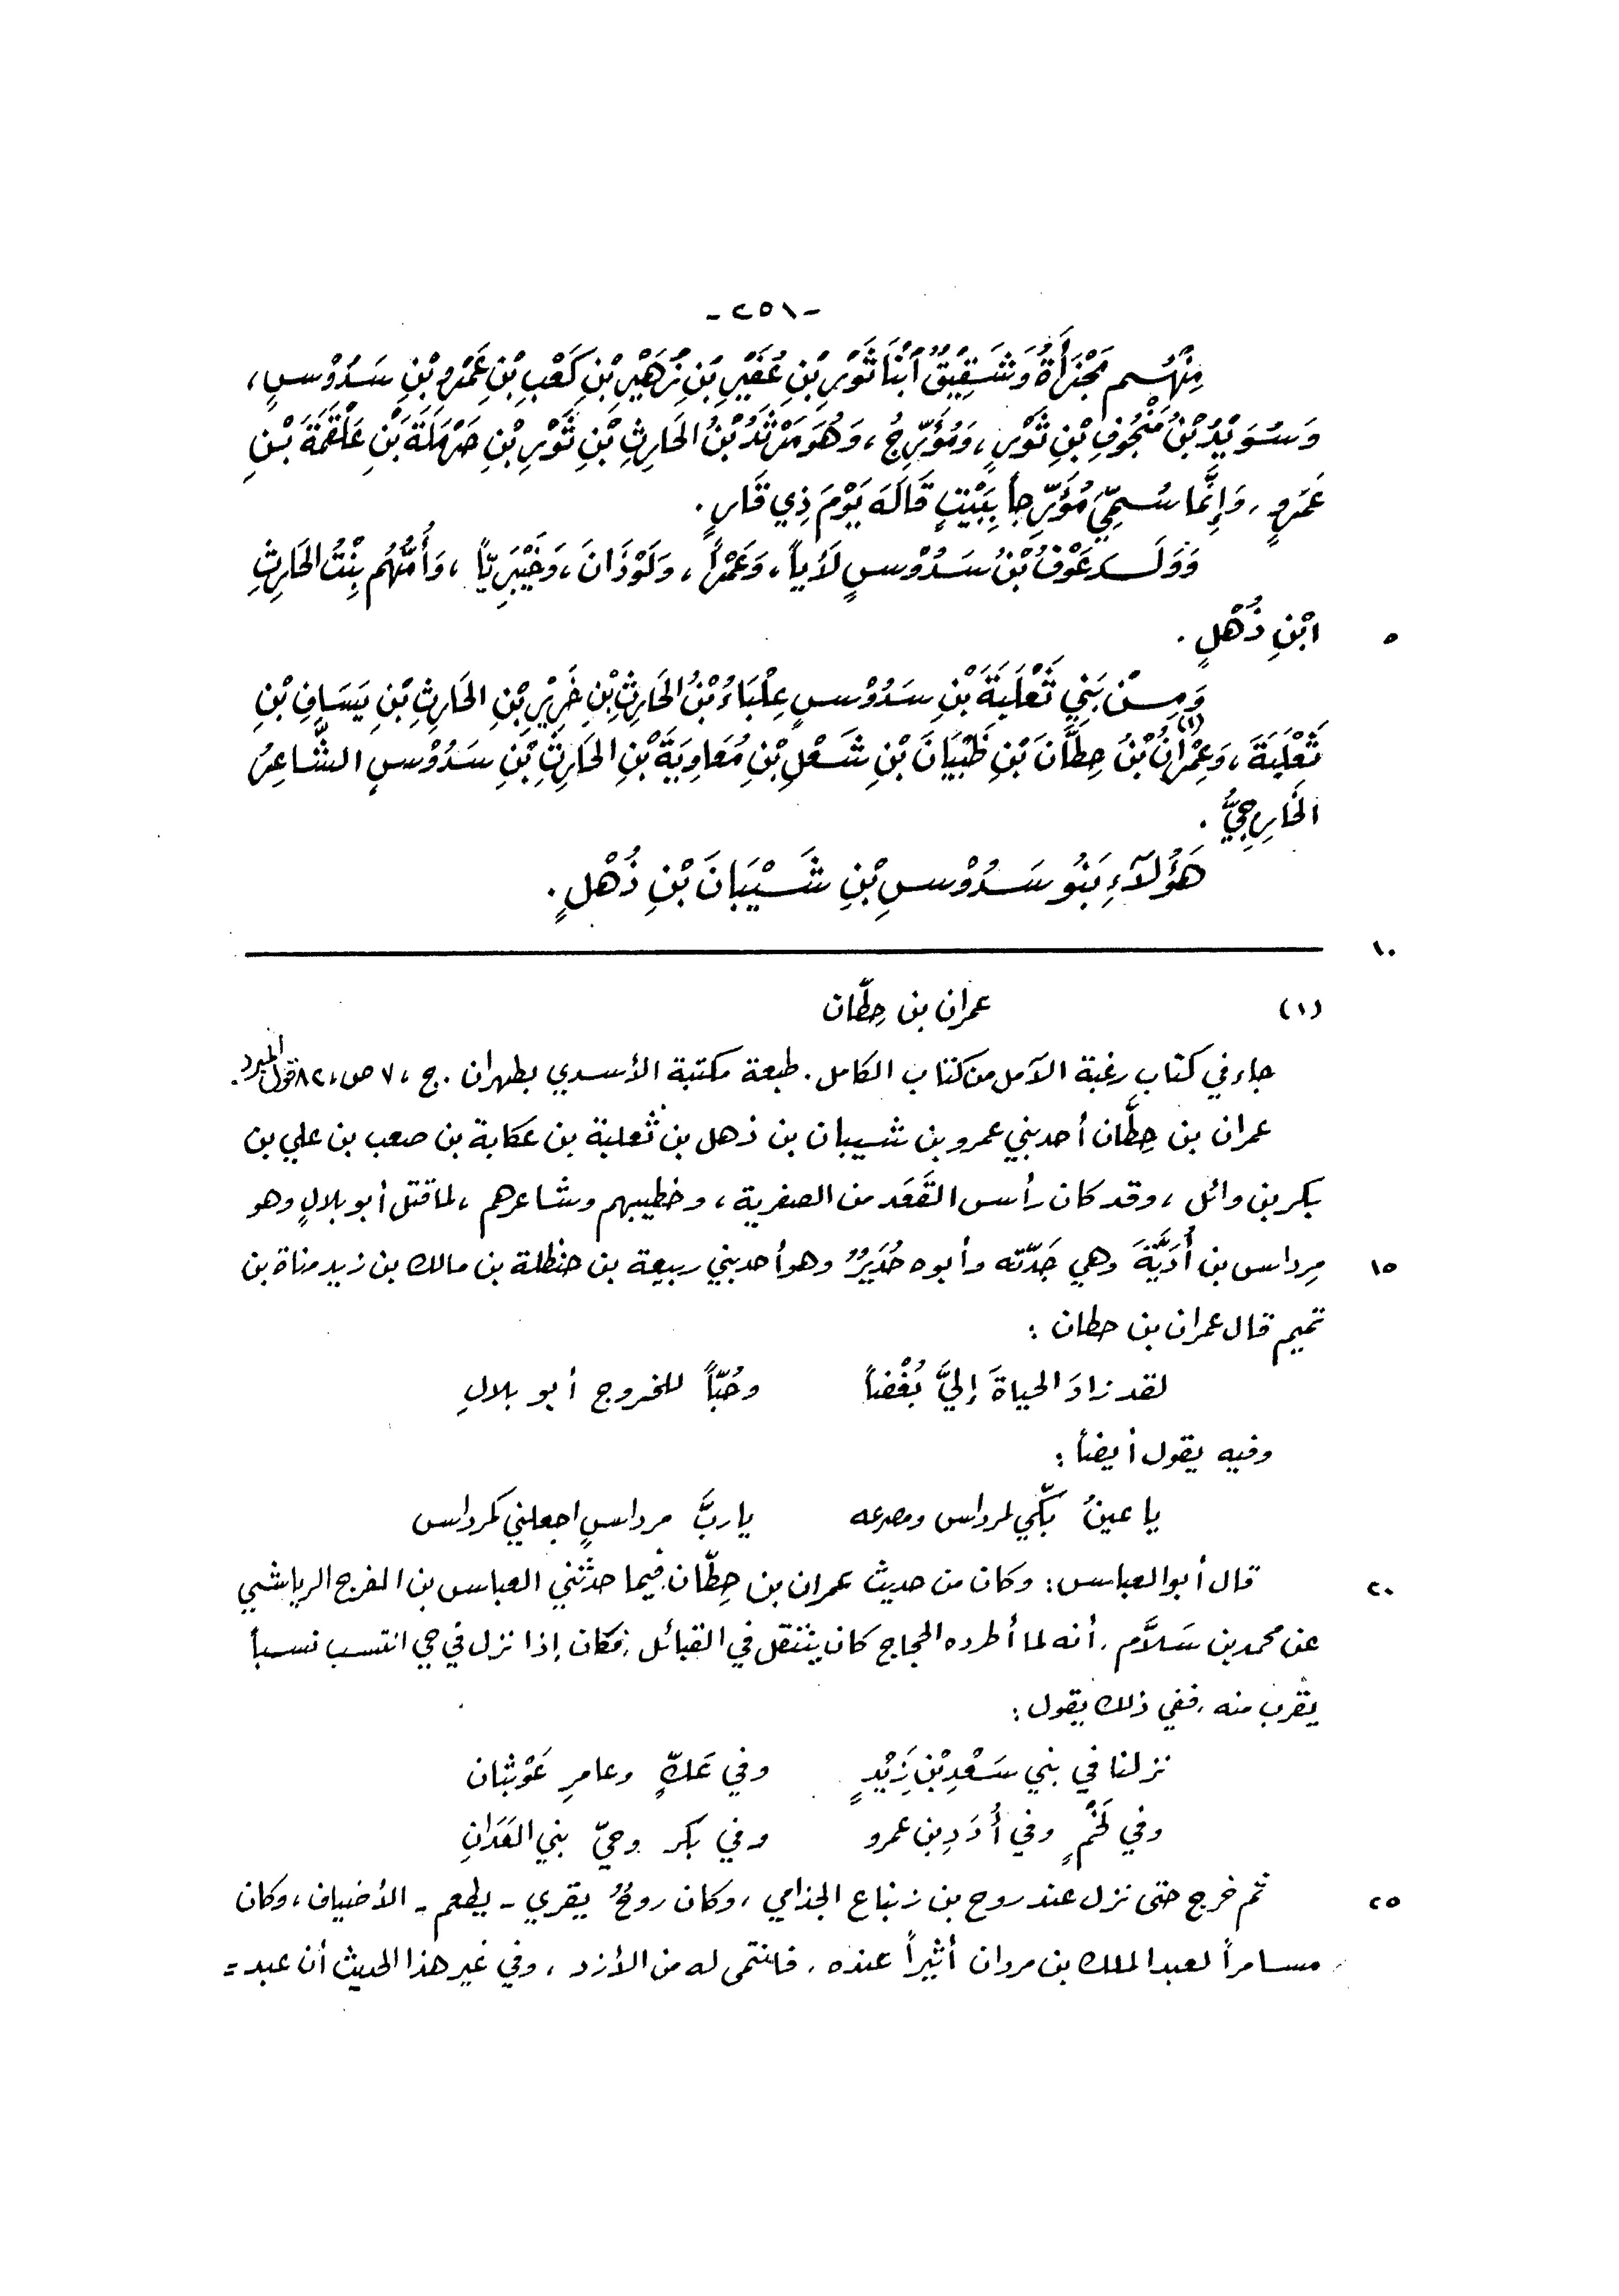 -٢٥١-
مِنْهُم مَجْزَأَةُ وَشَقِيْقٌ ابْنَا ثَوْرِ بْنِ عُفَيْرِ بْنِ زُهَيْرِ بْنِ كَعْبِ بْنِ عَمْرِو بْنِ سَدُوْسٍ،
وَسُوَيْدُ بْنُ مَنْجُوْفِ بْنِ ثَوْرٍ، وَمُؤَرِّجُ، وَهُوَ مَرْثَدُ بْنُ الحَارِثِ بْنِ ثَوْرِ بْنِ حَرْمَلَةَ بْنِ عَلْقَمَةَ بْنِ
عَمْرٍو، وَإِنَّمَا سُمِّيَ مُؤَرِّجاً بِبَيْتٍ قَالَهَ يَوْمَ ذِي قَارٍ.
وَوَلَدَ عَوْفُ بْنُ سَدُوْسٍ لَأْياً، وَعَمْراً، وَلَوْذَانَ، وَخَيْبَرِيّاً، وَأُمُّهُم بِنْتُ الحَارِثِ
٥ ابْنِ ذُهْلٍ.
وَمِنْ بَنِي ثَعْلَبَةَ بْنِ سَدُوْسٍ عِلْبَاءُ بْنُ الحَارِثِ بْنِ خَرِيْرِ بْنِ الحَارِثِ بْنِ يَسَافِ بْنِ
ثَعْلَبَةَ، وَعِمْرَانُ (١) بْنُ حِطَّانَ بْنِ ظَبْيَانَ بْنِ شَعْلِ بْنِ مُعَاوِيَةَ بْنِ الحَارِثِ بْنِ سَدُوْسٍ الشَّاعِرُ
الخَارِجِيُّ.
هَؤُلَآءِ بَنُو سَدُوْسِ بْنِ شَيْبَانَ بْنِ ذُهْلٍ.
١٠
(١) عمران بن حِطَّان
جاء في كتاب رغبة الآمل من كتاب الكامل. طبعة مكتبة الأسدي بطهران. ج، ٧ ص، ٨٢ قول المبرد.
عمران بن حِطَّان أحد بني عمرو بن شيبان بن ذهل بن ثعلبة بن عكابة بن صعب بن علي بن
بكر بن وائل، وقد كان رأس القَعَد من الصفرية، وخطيبهم وشاعرهم، لما قتل أبو بلالٍ وهو
١٥ مِرداس بن أُدَيَّةَ وهي جَدّته وأبوه حُدَيْرٌ وهو أحد بني ربيعة بن حنظلة بن مالك بن زيد مناة بن
تميم قال عمران بن حطان:
لقد زادَ الحياةَ إليَّ بُغْضاً وحُبّاً للخروج أبو بلالِ
وفيه يقول أيضاً:
يا عينُ بكّي لمرداس ومصرعه يا ربَّ مرداسٍ اجعلني كمرداس
٢٠ قال أبو العباس: وكان من حديث عمران بن حِطّان، فيما حدثني العباس بن الفرج الرياشي
عن محمد بن سَلاَّم، أنه لما أطرده الحجاج كان يتنقل في القبائل، فكان إذا نزل في حي انتسب نسباً
يقرب منه، ففي ذلك يقول:
نزلنا في بني سَعْدِ بْنِ زَيْدٍ وفي عَكٍّ وعامرِ عَوْبثان
وفي لَخْمٍ وفي أُدَدِ بن عمرو وفي بكر وحيّ بني الغَدَانِ
٢٥ ثم خرج حتى نزل عند روح بن زنباع الجذامي، وكان روحٌ يقري - يطعم - الأضياف، وكان
مسامراً لعبد الملك بن مروان أثيراً عنده، فانتمى له من الأزد، وفي غير هذا الحديث أن عبد =